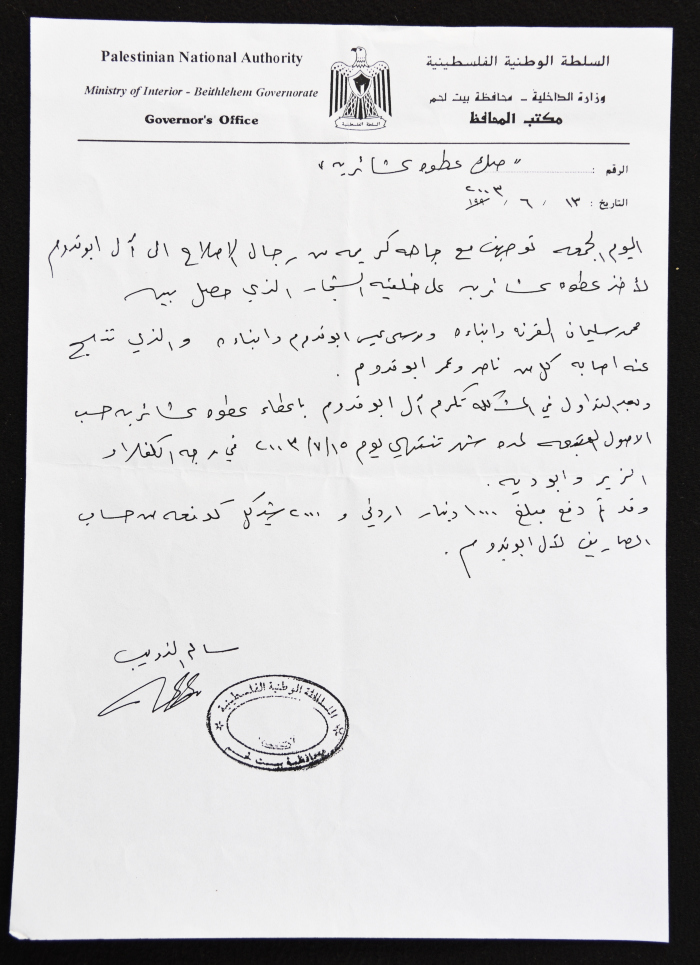 Palestinian National Authority
Ministry of Interior - Beithlehem Governorate
Governor's Office
السلطة الوطنية الفلسطينية
وزارة الداخلية - محافظة بيت لحم
مكتب المحافظ
السلطة الفلسطينية
الرقم : "صك عطوه عشائريه"
التاريخ : ١٣ / ٦ / ٢٠٠٣
اليوم الجمعه توجهت مع جاهه كريمه من رجال الاصلاح الى آل ابو قدوم
لأخذ عطوه عشائريه على خلفيه الشجار الذي حصل بين
محمد سليمان القرنه وابناءه وموسى عيسى ابو قدوم وابناءه والذي نتج
عنه اصابه كل من ناصر وعمر ابو قدوم .
وبعد التداول في المشكله تكرم آل ابو قدوم باعطاء عطوه عشائريه حسب
الاصول المتبعه لمده شهر تنتهي يوم ٢٠٠٣/٧/١٥ في وجه الكفلاء
الزير وابو ديه .
وقد تم دفع مبلغ ١٠٠٠ دينار اردني و ٢٠٠٠ شيكل كدفعه من حساب
المصاريف لآل ابو قدوم .
سالم الذويب
السلطة الوطنية الفلسطينية
محافظة بيت لحم